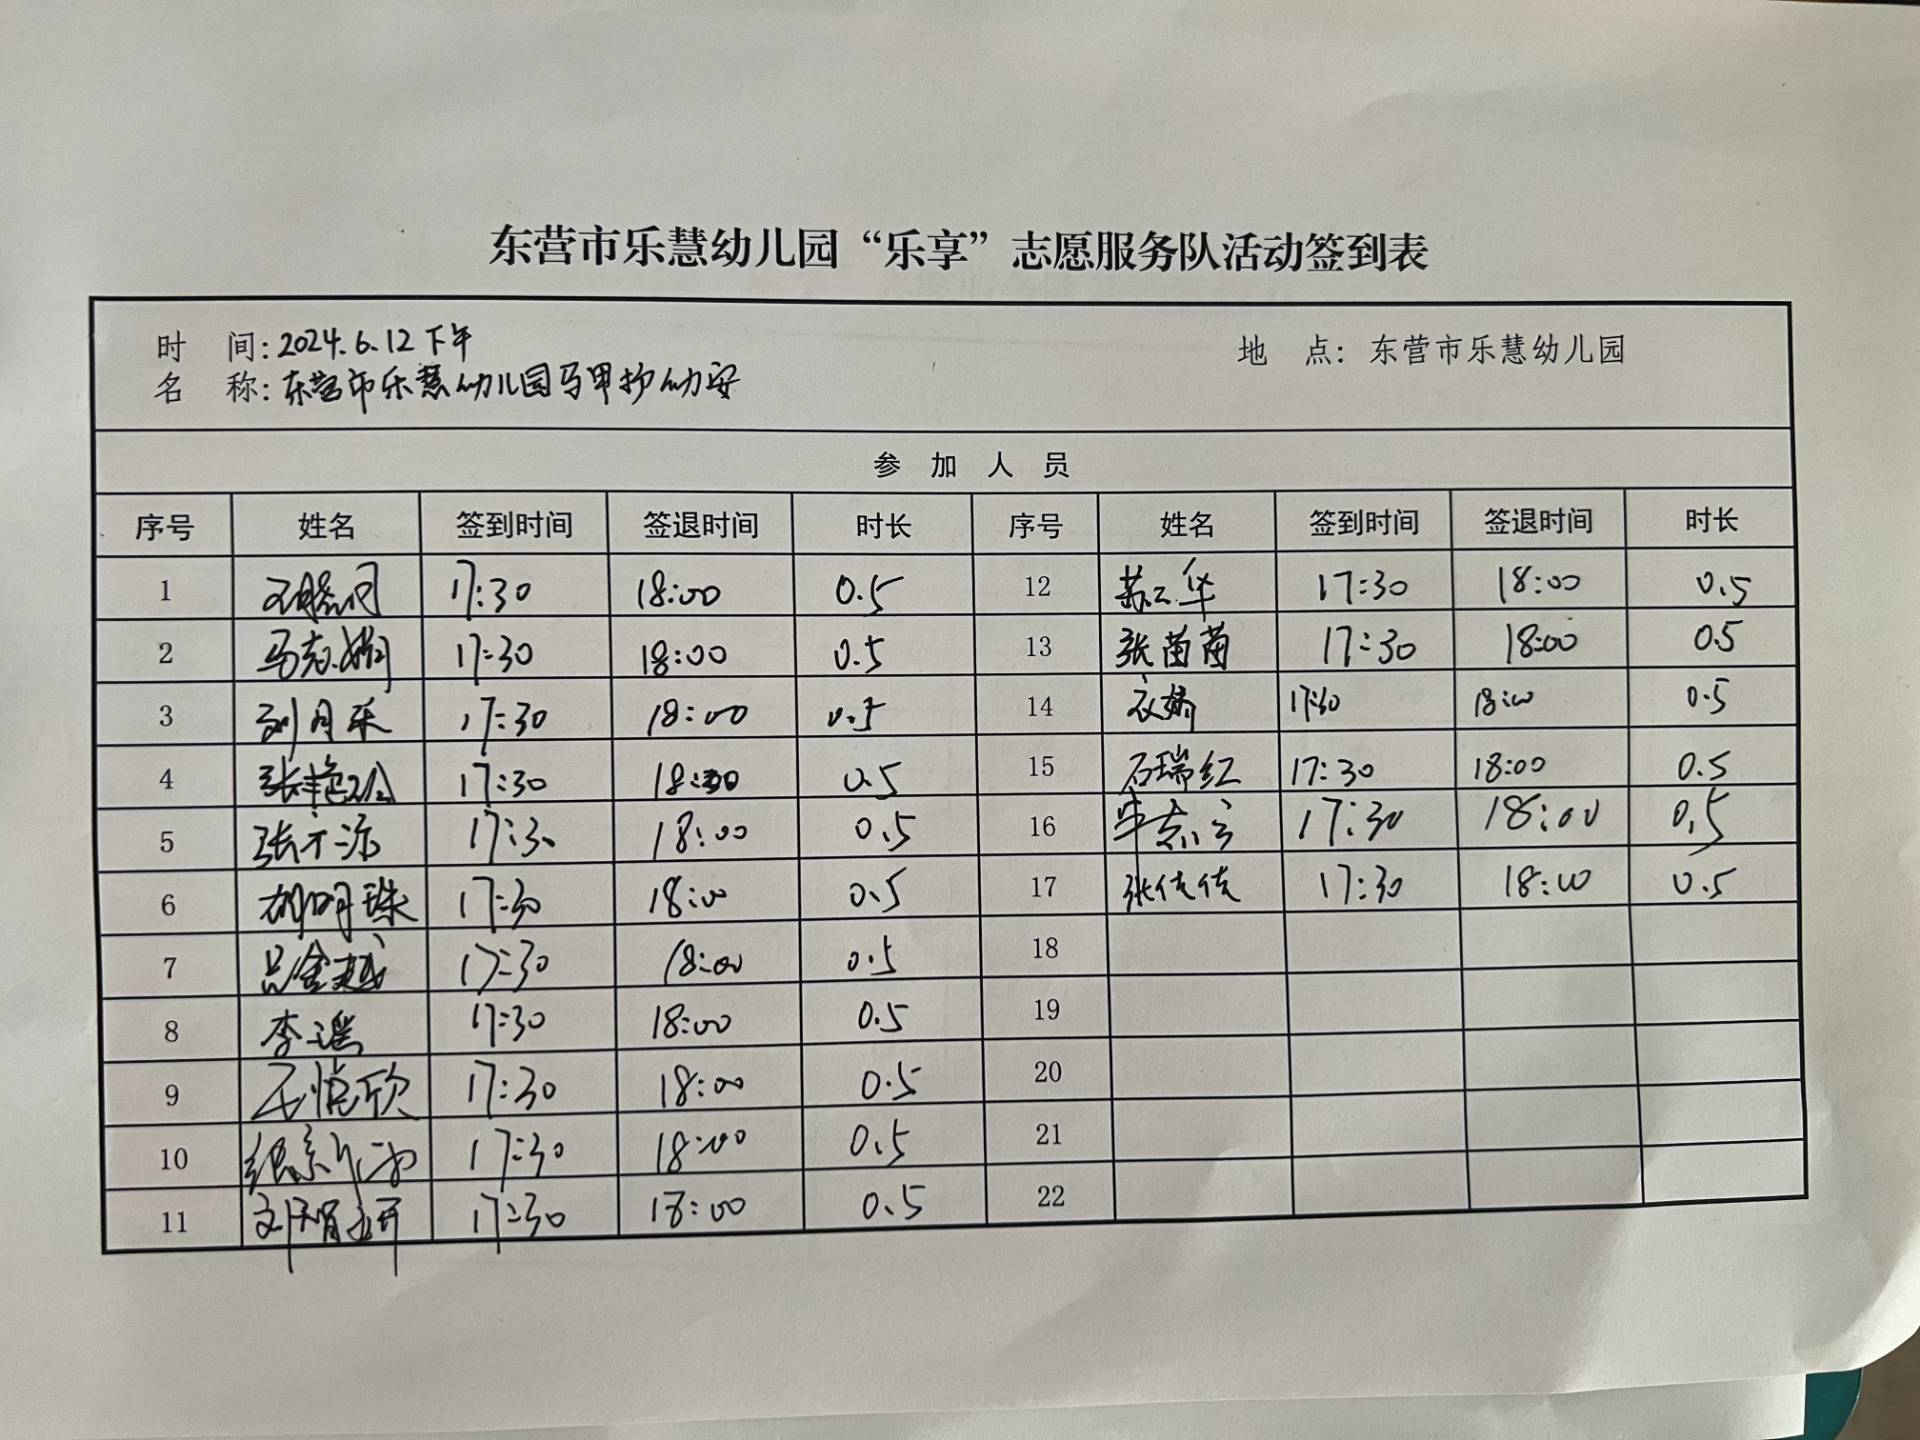 东营市乐慧幼儿园“乐享”志愿服务队活动签到表
时 间：2024.6.12下午 地 点：东营市乐慧幼儿园
名 称：东营市乐慧幼儿园马甲护幼安
参 加 人 员
序号 姓名 签到时间 签退时间 时长 序号 姓名 签到时间 签退时间 时长
1 17:30 18:00 0.5 12 苏云华 17:30 18:00 0.5
2 马志娟 17:30 18:00 0.5 13 张苗苗 17:30 18:00 0.5
3 刘月采 17:30 18:00 0.5 14 衣娇 17:30 18:00 0.5
4 张艳 17:30 18:00 0.5 15 石瑞红 17:30 18:00 0.5
5 张 17:30 18:00 0.5 16 17:30 18:00 0.5
6 胡明珠 17:30 18:00 0.5 17 张佳佳 17:30 18:00 0.5
7 吕金越 17:30 18:00 0.5 18
8 李瑶 17:30 18:00 0.5 19
9 17:30 18:00 0.5 20
10 17:30 18:00 0.5 21
11 17:30 18:00 0.5 22